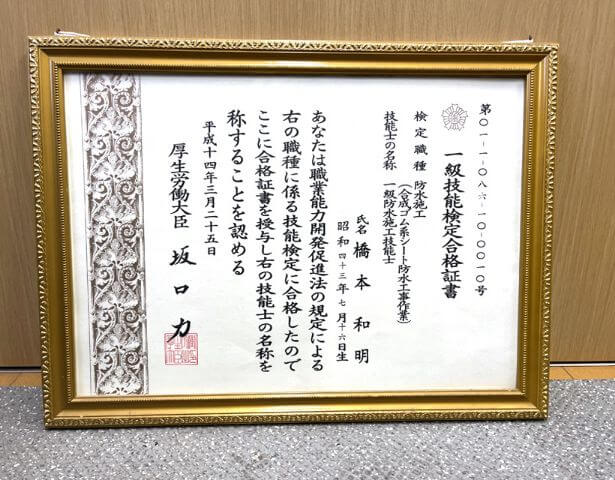 第〇一-一-〇八六-一〇-〇〇一〇号
一級技能検定合格証書
検定職種 防水施工
(合成ゴム系シート防水工事作業)
技能士の名称 一級防水施工技能士
氏名 橋本和明
昭和四十三年七月十六日生
あなたは職業能力開発促進法の規定による
右の職種に係る技能検定に合格したので
ここに合格証書を授与し右の技能士の名称を
称することを認める
平成十四年三月二十五日
厚生労働大臣 坂口力